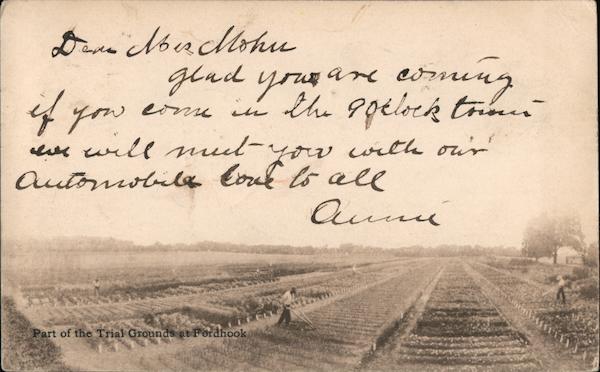 Dear Mrs Mohn
Glad you are coming
if you come in the 9 Oclock train
we will meet you with our
Automobile love to all
Annie
Part of the Trial Grounds at Fordhook